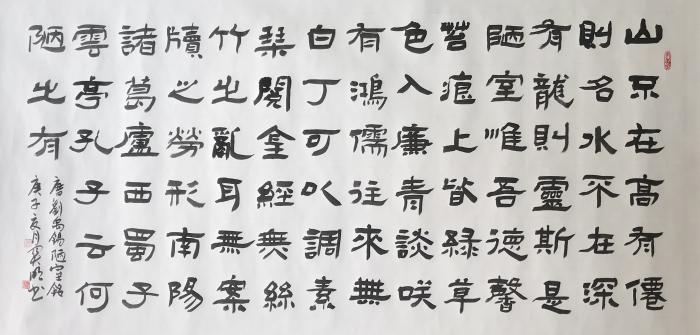 山不在高有僊
則名水不在深
有龍則靈斯是
陋室惟吾德馨
苔痕上皆綠草
色入廉青談咲
有鴻儒往來無
白丁可以調素
琹閱金經無絲
竹之亂耳無案
牘之勞形南陽
諸葛廬西蜀子
雲亭孔子云何
陋之有
唐劉禹錫陋室銘
庚子夏月吳书